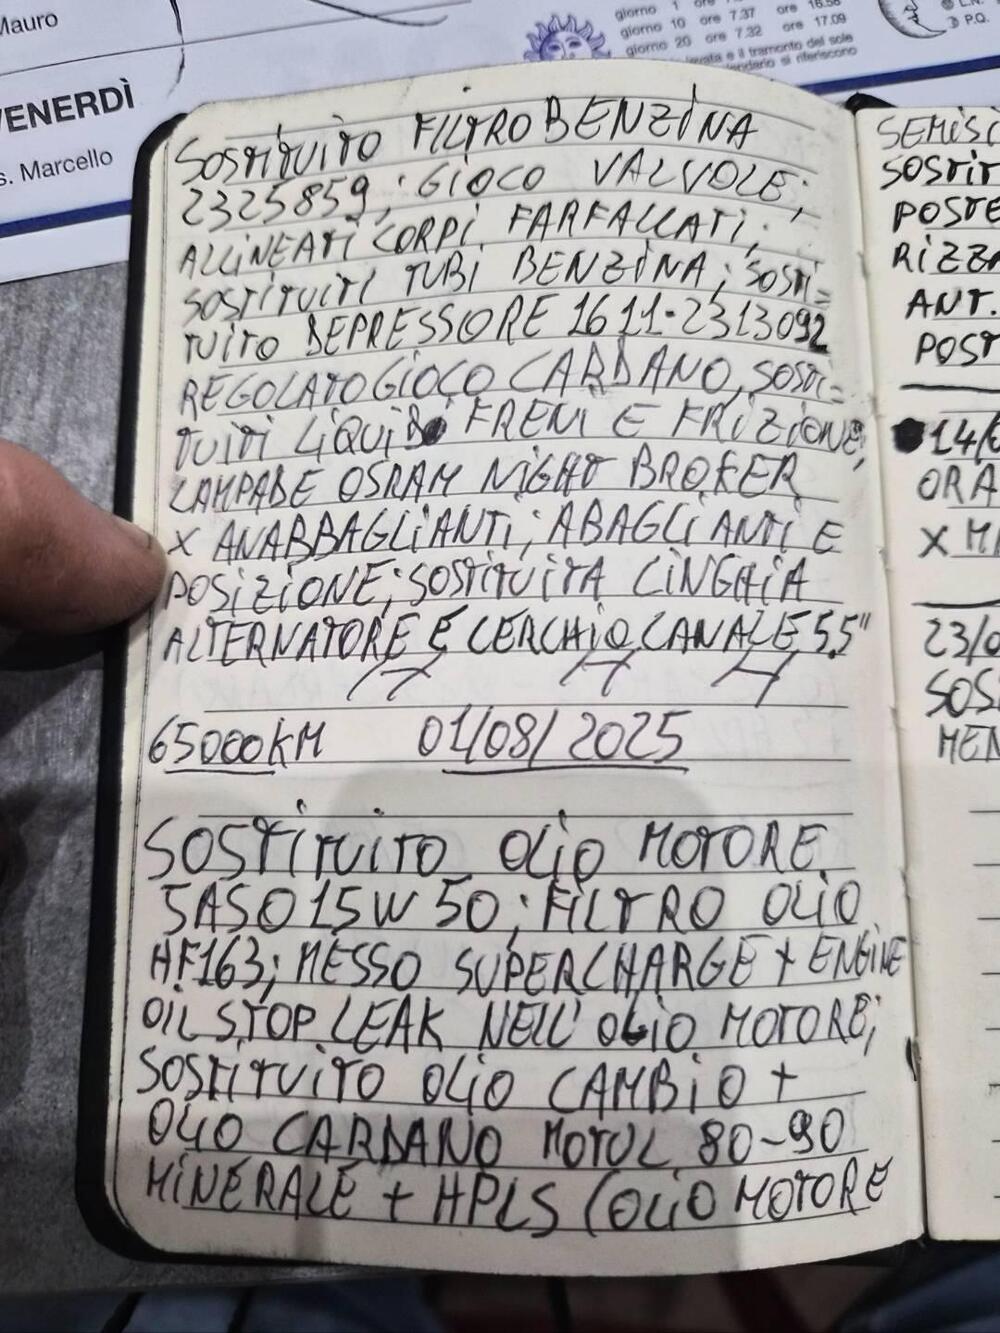 Mauro
VENERDÌ
s. Marcello
giorno 10 ore 7.37 ore 17.09
giorno 20 ore 7.32
e il tramonto del sole
si riferiscono
P.Q.
SOSTITUITO FILTRO BENZINA
2325859; GIOCO VALVOLE;
ALLINEATI CORPI FARFALLATI;
SOSTITUITI TUBI BENZINA; SOSTI=
TUITO DEPRESSORE 1611-2313092
REGOLATO GIOCO CARDANO, SOSTI=
TUITI LIQUIDO FRENI E FRIZIONE;
LAMPADE OSRAM NIGHT BROKER
X ANABBAGLIANTI; ABAGLIANTI E
POSIZIONE; SOSTITUITA CINGHIA
ALTERNATORE E CERCHIO CANALE 5.5"
65000KM 01/08/2025
SOSTITUITO OLIO MOTORE
SASO 15W50; FILTRO OLIO
HF163; MESSO SUPERCHARGE + ENGINE
OIL STOP LEAK NELL' OLIO MOTORE;
SOSTITUITO OLIO CAMBIO +
OLIO CARDANO MOTUL 80-90
MINERALE + HPLS (OLIO MOTORE
SEMISI
SOSTIT
POSTE
RIZZA
ANT.
POST
14/
ORA
X M
23/0
SOS
MEN